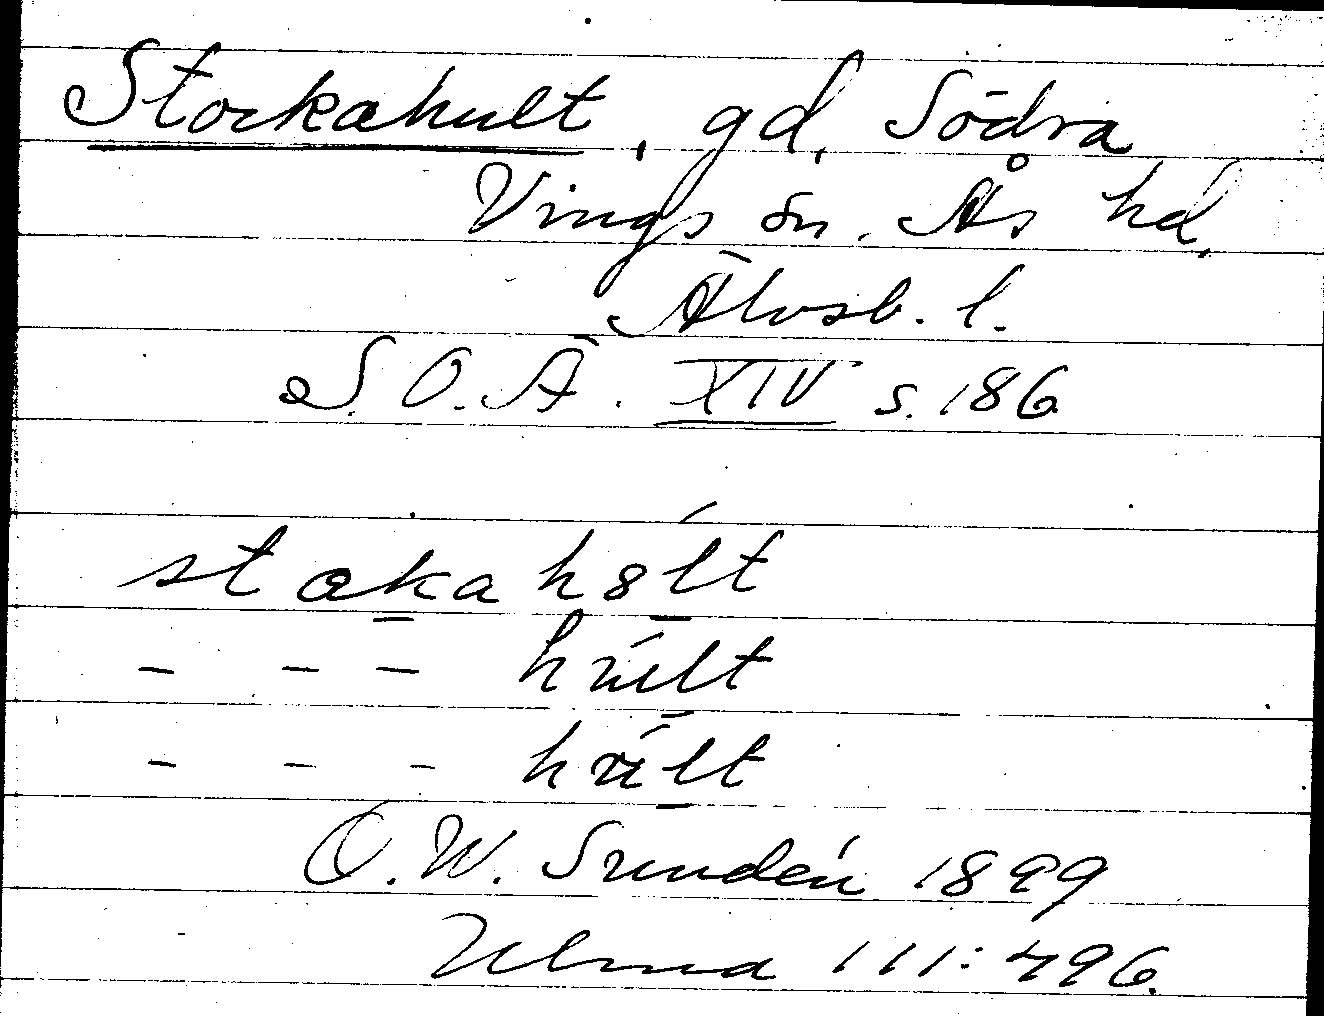 Stockahult, gd, Södra
Vings sn. Ås hd,
Älvsb. l.
S. O. Ä. XIV s. 186
stakah 8́lt
- - - húlt
- - - húlt
O. W. Sundén 1899
Ulma 111:496.